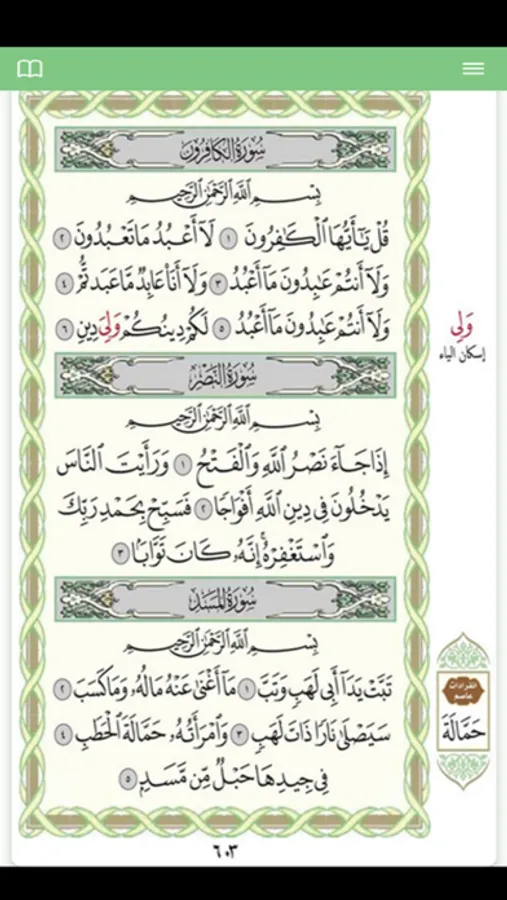 سُورَةُ الكَافِرُونَ
بِسْمِ اللَّهِ الرَّحْمَٰنِ الرَّحِيمِ
قُلْ يَٰٓأَيُّهَا ٱلْكَٰفِرُونَ ١ لَآ أَعْبُدُ مَا تَعْبُدُونَ ٢
وَلَآ أَنتُمْ عَٰبِدُونَ مَآ أَعْبُدُ ٣ وَلَآ أَنَا۠ عَابِدٌ مَّا عَبَدتُّمْ ٤
وَلَآ أَنتُمْ عَٰبِدُونَ مَآ أَعْبُدُ ٥ لَكُمْ دِينُكُمْ وَلِيَ دِينِ ٦
سُورَةُ النَّصْرِ
بِسْمِ اللَّهِ الرَّحْمَٰنِ الرَّحِيمِ
إِذَا جَآءَ نَصْرُ ٱللَّهِ وَٱلْفَتْحُ ١ وَرَأَيْتَ ٱلنَّاسَ
يَدْخُلُونَ فِي دِينِ ٱللَّهِ أَفْوَاجًا ٢ فَسَبِّحْ بِحَمْدِ رَبِّكَ
وَٱسْتَغْفِرْهُۚ إِنَّهُۥ كَانَ تَوَّابًۢا ٣
سُورَةُ المَسَدِ
بِسْمِ اللَّهِ الرَّحْمَٰنِ الرَّحِيمِ
تَبَّتْ يَدَآ أَبِي لَهَبٍ وَتَبَّ ١ مَآ أَغْنَىٰ عَنْهُ مَالُهُۥ وَمَا كَسَبَ ٢
سَيَصْلَىٰ نَارًا ذَاتَ لَهَبٍ ٣ وَٱمْرَأَتُهُۥ حَمَّالَةَ ٱلْحَطَبِ ٤
فِي جِيدِهَا حَبْلٌ مِّن مَّسَدٍۭ ٥
وَلِي
إسكان الياء
انفرادات
عاصم
حَمَّالَةَ
٦٠٣